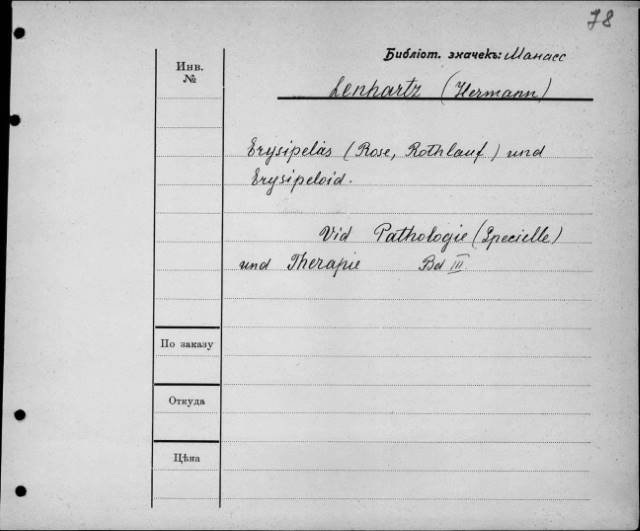 78
Библіот. значекъ: Манасс
Инв.
№
Lenhartz (Hermann)
Erysipelas (Rose, Rothlauf) und
Erysipeloid.
Vid Pathologie (Specielle)
und Therapie Bd III.
По заказу
Откуда
Цѣна